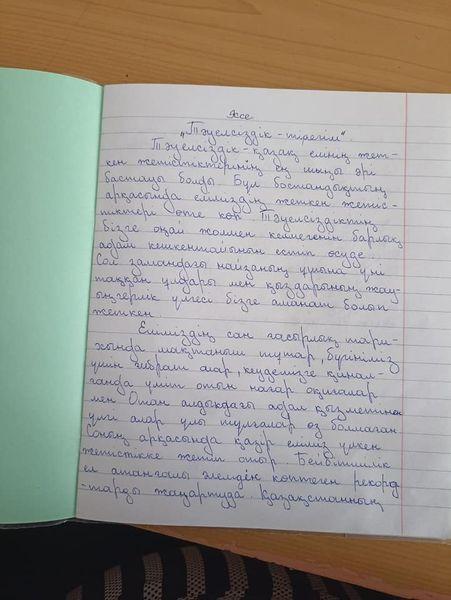 Эссе
„Тәуелсіздік-тірегім".
Тәуелсіздік-қазақ елінің жет-
кен жетістіктерінің ең шыңы әрі
бастауы болды. Бұл бостандықтың
арқасында еліміздің жеткен жетіс-
тіктері өте көп. Тәуелсіздіктің
бізге оңай жолмен келмегенін барлық
адам кешкентайынан естіп өсуде.
Сол замандағы найзаның ұшына үкі
таққан ұлдары мен қыздарының жау-
ынгерлік үлгесі бізге аманат болып
жеткен.
Еліміздің сан ғасырлық тари-
хында мақтаныш тұтар, бүгініміз
үшін ғибрат алар, кеудемізге қинал-
ғанда үміт отын жағар оқиғалар
мен Отан алдындағы адал қызметінен
үлгі алар ұлы тұлғалар аз болмаған
Соның арқасында қазір еліміз үлкен
жетістікке жетіп отыр. Бейбітшілік
ел атанғалы әлемдік көптеген рекорд
-тарды жаңартуда. Қазақстанның